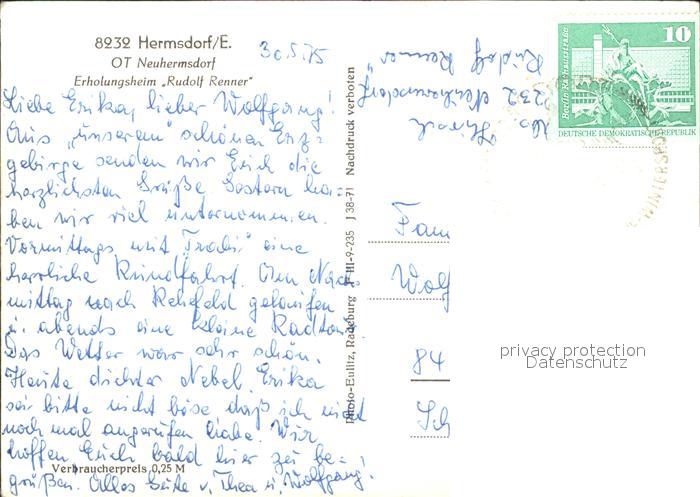 8232 Hermsdorf/E.
OT Neuhermsdorf
Erholungsheim „Rudolf Renner"
30.5.75
Liebe Erika, lieber Wolfgang!
Aus „unserem" schönen Erz-
gebirge senden wir Euch die
herzlichsten Grüße. Gestern ha-
ben wir viel unternommen.
Vormittags mit „Trabi" eine
herrliche Rundfahrt. Am Nach-
mittag nach Rehefeld gelaufen
u. abends eine kleine Radtour.
Das Wetter war sehr schön.
Heute dichter Nebel. Erika
sei bitte nicht böse daß ich nicht
noch mal angerufen habe. Wir
hoffen Euch bald hier zu be-
grüßen. Alles Gute v. Thea u. Wolfgang!
Verbraucherpreis 0,25 M
Photo-Eulitz, Radeburg III-9-235 J 38-71 Nachdruck verboten
8232 Neuhermsdorf
„Rudolf Renner"
10
Berlin Rathausstraße
DEUTSCHE DEMOKRATISCHE REPUBLIK
WINTERSPO
Fam
Wolf
84
privacy protection
Datenschutz